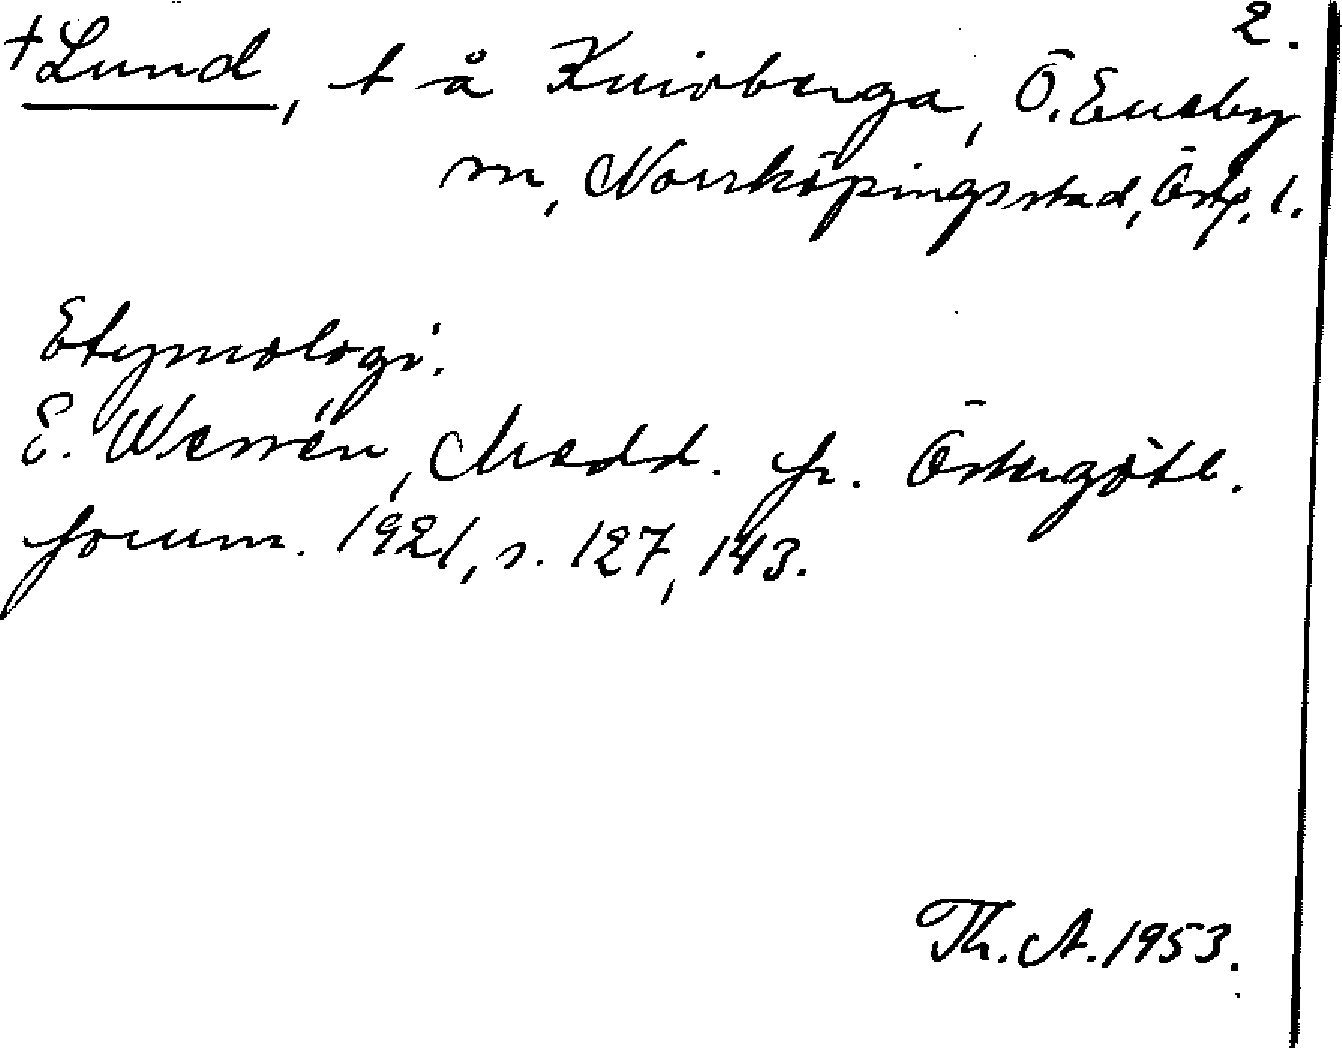 2.
†Lund, t å Knivberga, Ö. Eneby
sn, Norrköpings stad, Östg. l.
Etymologi.
E. Wessén, Medd. fr. Östergötl.
fornm. 1921, s. 127, 143.
Th. A. 1953.